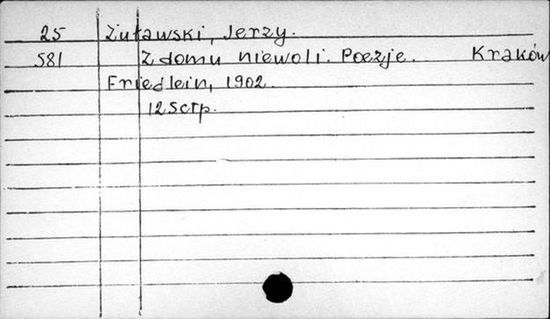 25 Żuławski, Jerzy.
581 Z domu niewoli. Poezje. Kraków
Friedlein, 1902.
125 стр.